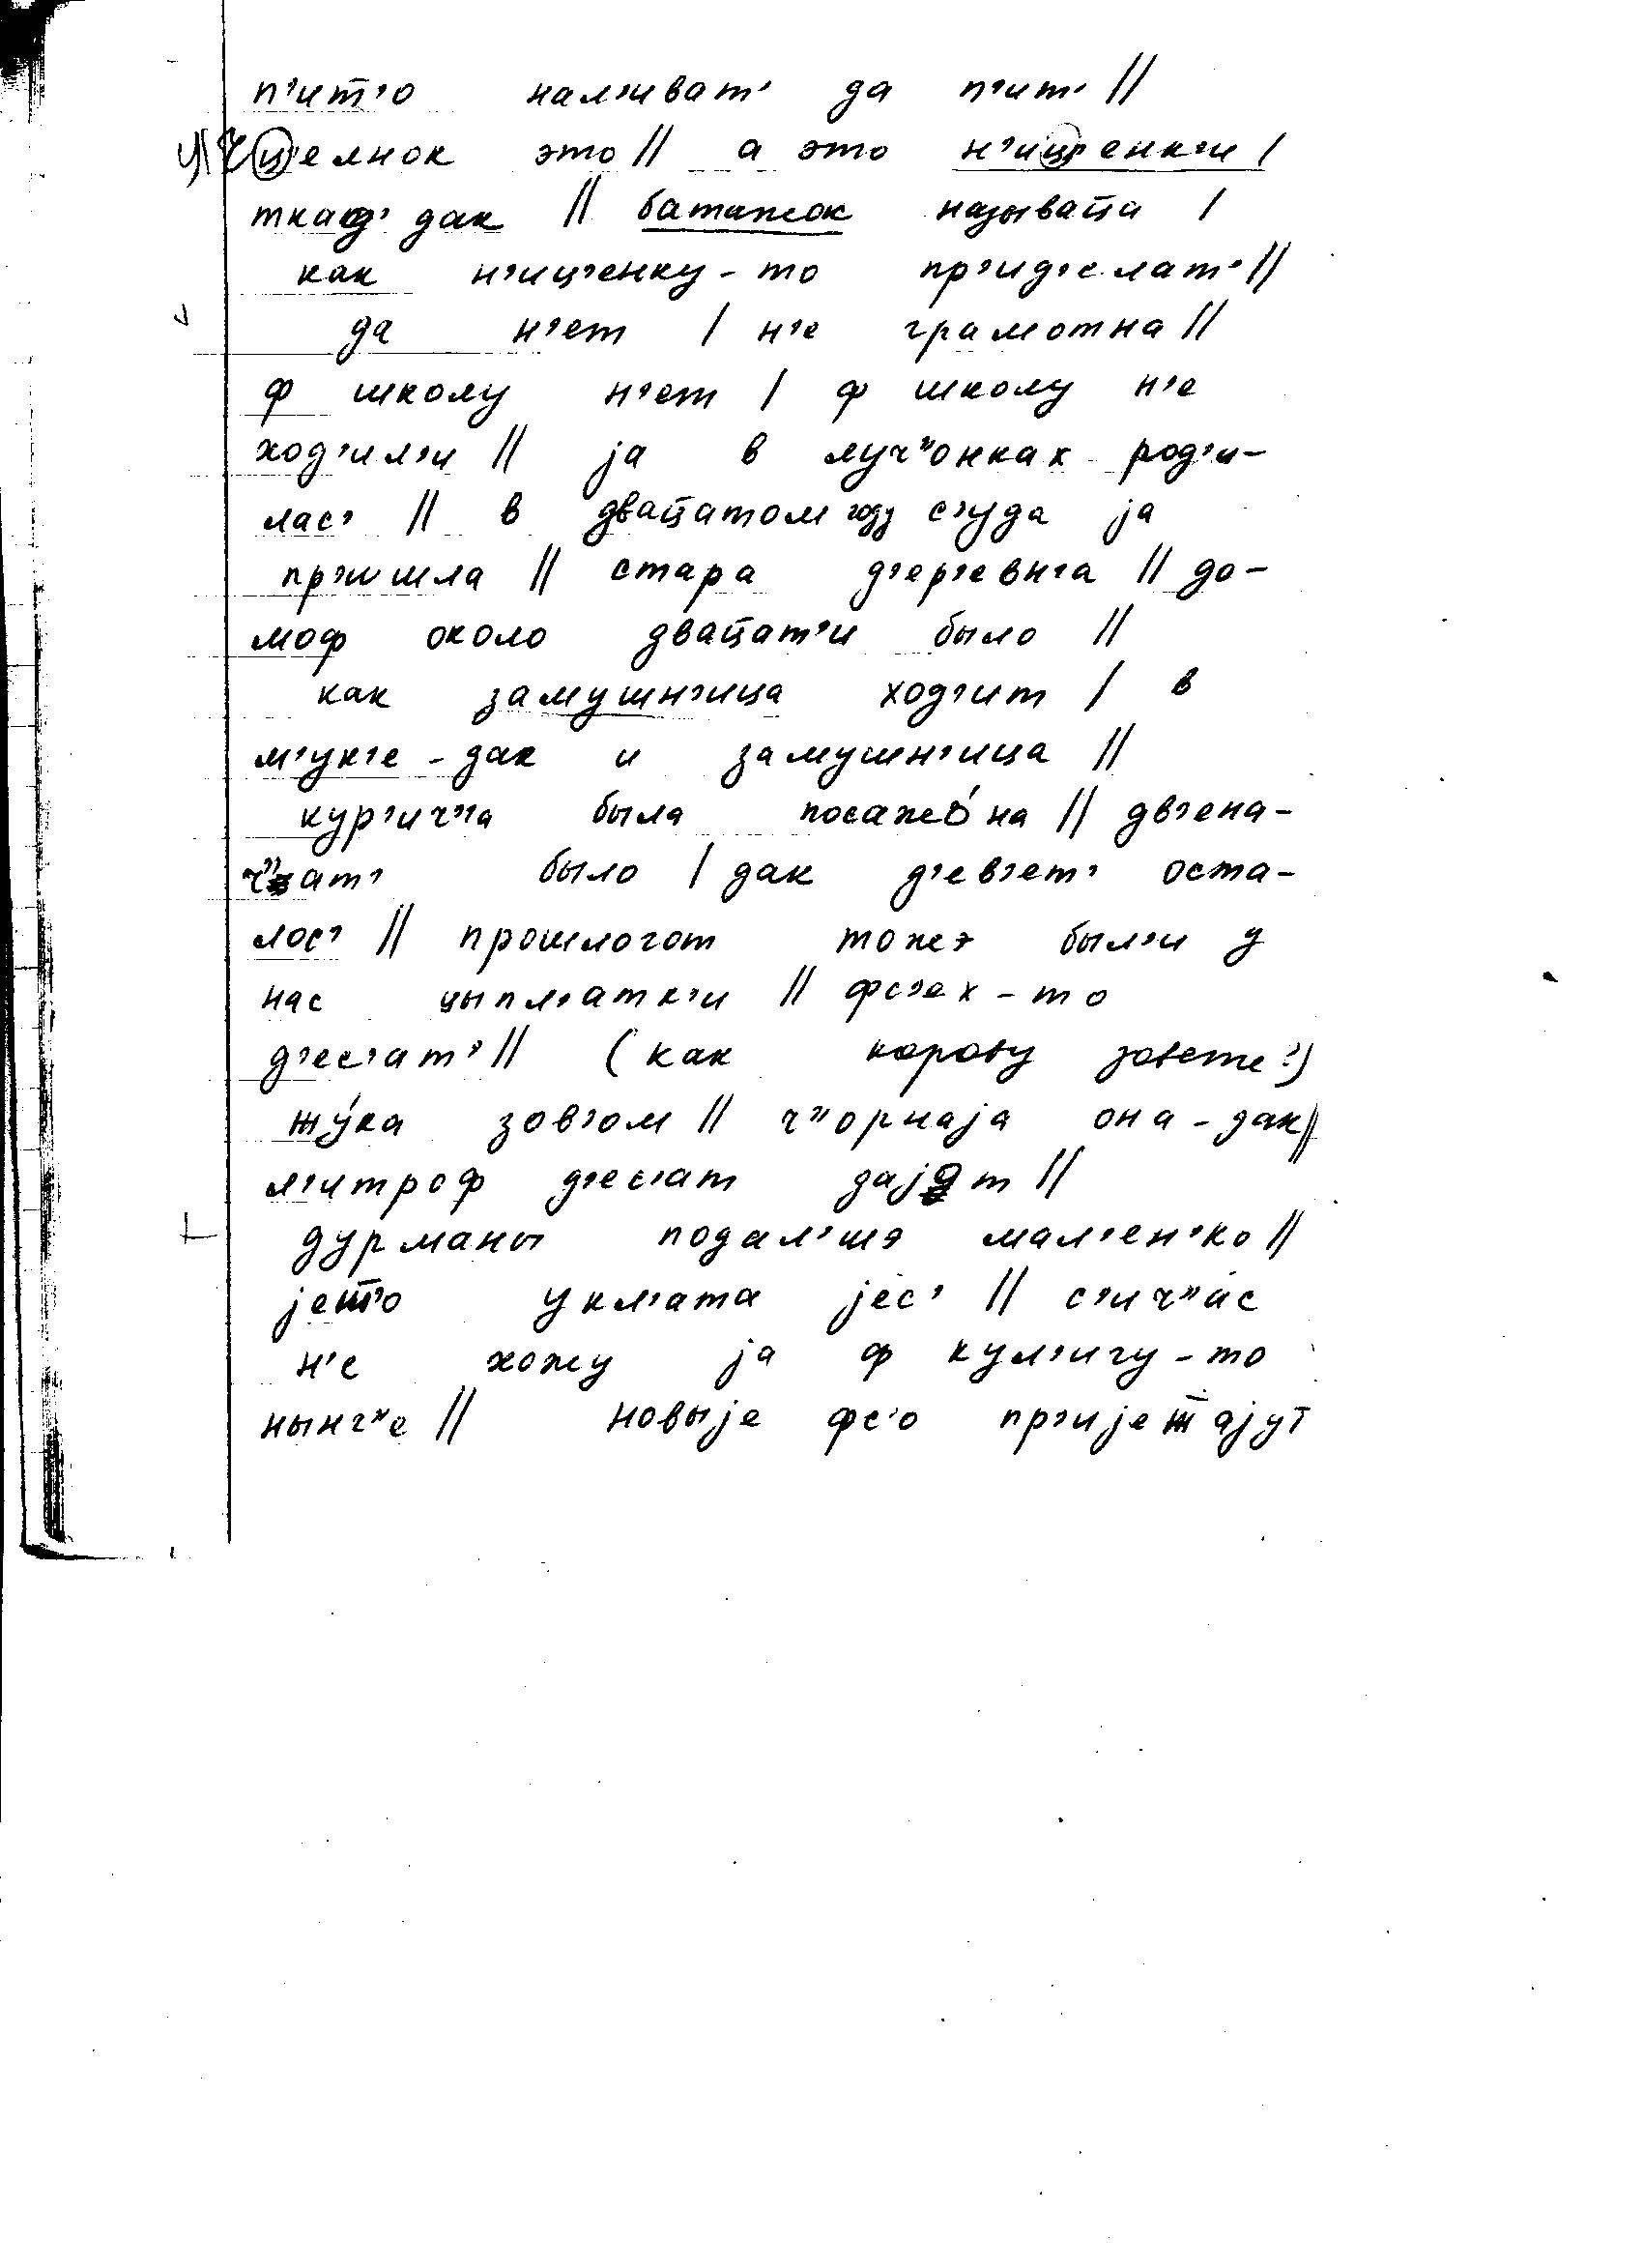 п'ит̅'о нал'иват' да п'ит' //
ц'елнок это // а это н'иц'енк'и /
ткац' дак // батажок называц̅а /
как н'иц'енку-то пр'ид'елат' //
да н'ет / н'е грамотна //
ф школу н'ет / ф школу н'е
ход'ил'и // ја в луч"онках род'и-
лас' // в двац̅атом году с'уда ја
пр'ишла // стара д'ер'евн'а // до-
моф около двац̅ат'и было //
как замушн'ица ход'ит / в
м'ук'е-дак и замушн'ица //
кур'ич"а была посажо́на // дв'ена-
ч"ат' было / дак д'ев'ет' оста-
лос' // прошлогот тожэ был'и у
нас цыпл'атк'и // фс'ех-то
д'ес'ат' // (как корову зовете?)
жу́ка зов'ом // ч"орнаја она-дак //
л'итроф д'ес'ат дајот //
дурманы подал'шэ мал'ен'ко //
јет̅'о укл'ата јес' // с'ич"ас
н'е хожу ја ф кул'игу-то
нынч"е // новыје фс'о пр'ијеж̅ајут